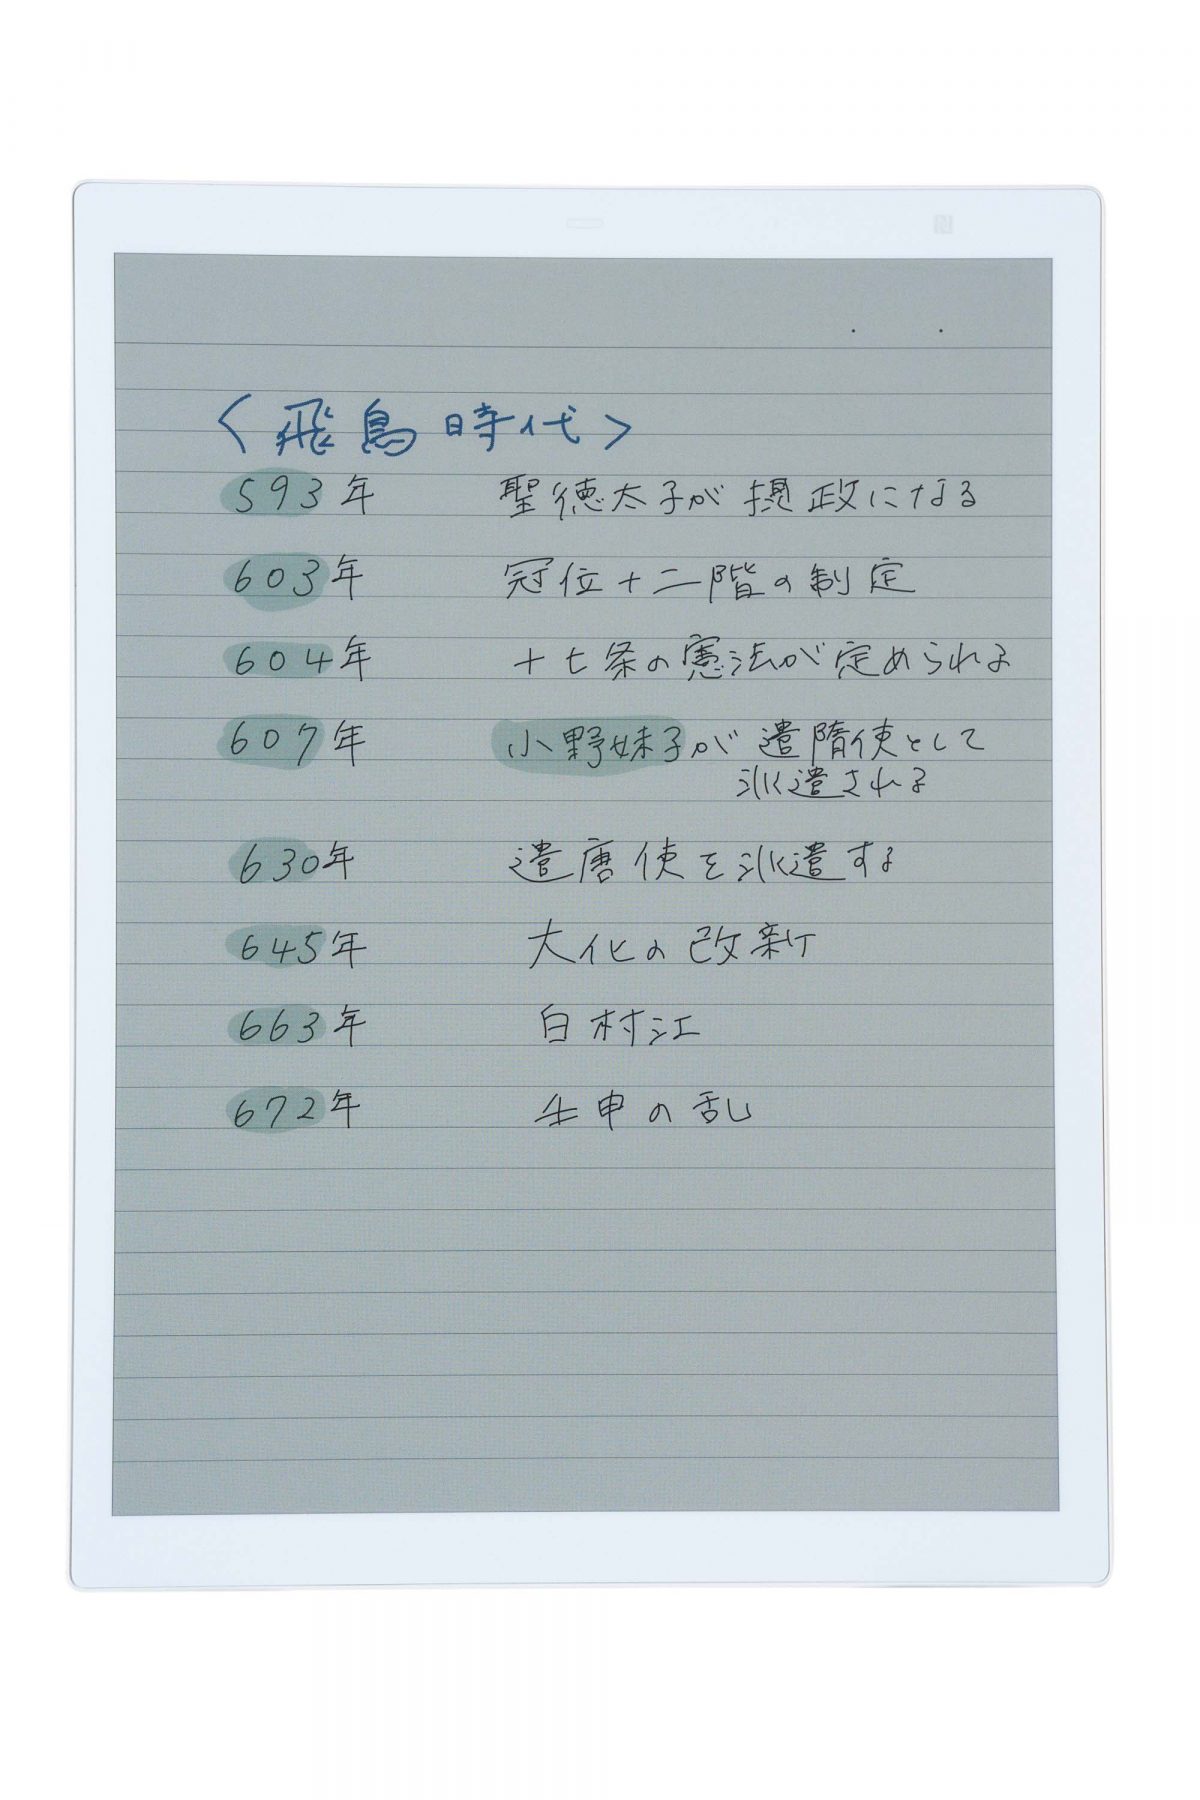 <飛鳥時代>
593年 聖徳太子が摂政になる
603年 冠位十二階の制定
604年 十七条の憲法が定められる
607年 小野妹子が遣隋使として
派遣される
630年 遣唐使を派遣する
645年 大化の改新
663年 白村江
672年 壬申の乱